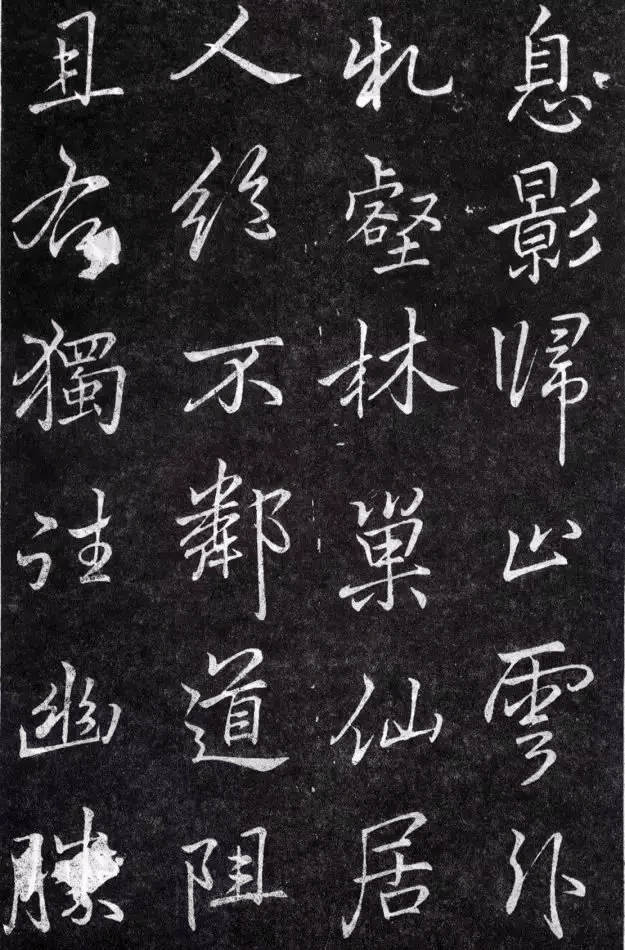 息影歸山雲
壑林巢仙居
人絕不鄰道阻
且右獨往幽勝